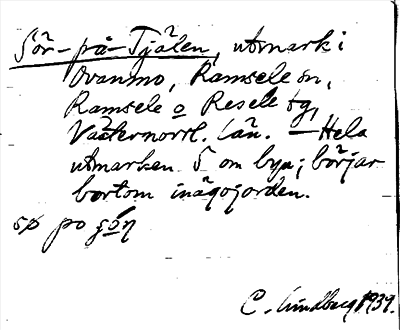 Sör-på-Tjälen, utmark i
Ovanmo, Ramsele sn,
Ramsele o Resele tg,
Västernorrl. län. – Hela
utmarken S om byn; börjar
bortom inägojorden.
sø po
C. Lindberg 1939.